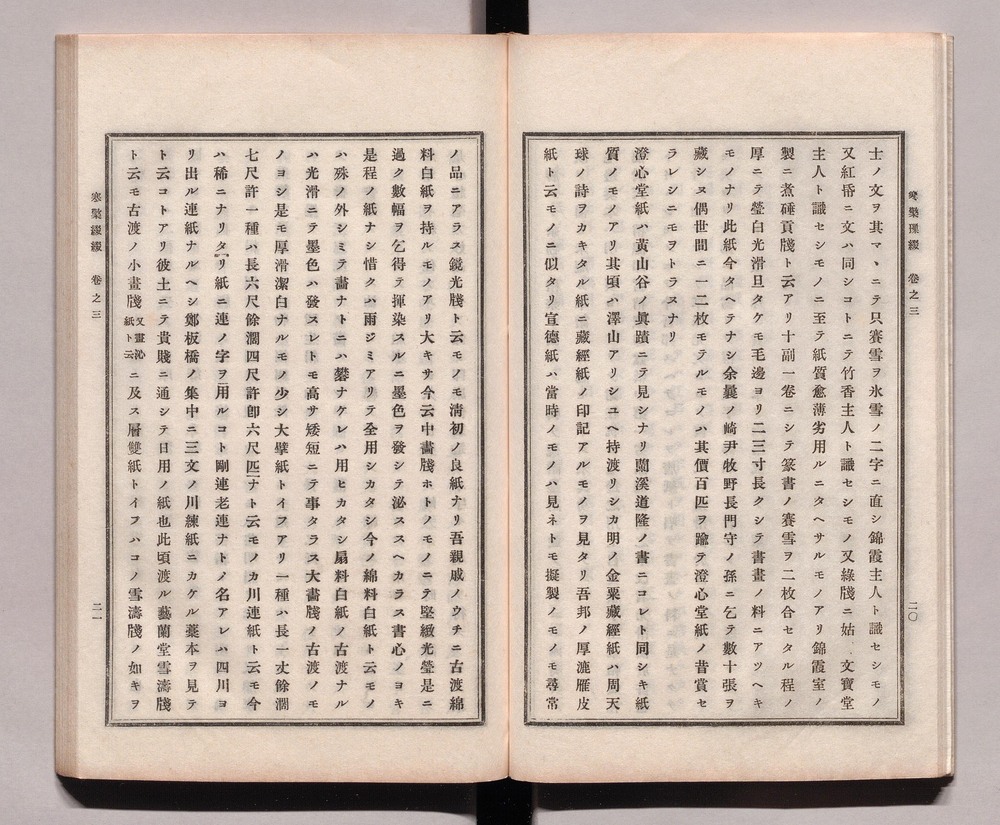 寒檠璅綴 卷之三 二〇
士ノ文ヲ其マヽニテ只賽雪ヲ氷雪ノ二字ニ直シ錦霞主人ト識セシモノ
又紅帋ニ文ハ同シコトニテ竹香主人ト識セシモノ又綠牋ニ姑 文寶堂
主人ト識セシモノニ至テ紙質愈薄劣用ルニタヘサルモノアリ錦霞室ノ
製ニ煮硾貢牋ト云アリ十副一卷ニシテ篆書ノ賽雪ヲ二枚合セタル程ノ
厚ニテ瑩白光滑且タケモ毛邊ヨリ二三寸長クシテ書畫ノ料ニアツヘキ
モノナリ此紙今タヘテナシ余曩ノ崎尹牧野長門守ノ孫ニ乞テ數十張ヲ
藏シヌ偶世間ニ一二枚モテルモノハ其價百匹ヲ踰テ澄心堂紙ノ昔賞セ
ラレシニモヲトラスナリ
澄心堂紙ハ黃山谷ノ眞蹟ニテ見シナリ蘭溪道隆ノ書ニコレト同シキ紙
質ノモノアリ其頃ハ澤山アリシユヘ持渡リシカ明ノ金粟藏經紙ハ周天
球ノ詩ヲカキタル紙ニ藏經紙ノ印記アルモノヲ見タリ吾邦ノ厚漉雁皮
紙ト云モノニ似タリ宣德紙ハ當時ノモノハ見ネトモ擬製ノモノモ尋常
ノ品ニアラス鏡光牋ト云モノモ淸初ノ良紙ナリ吾親戚ノウチニ古渡綿
料白紙ヲ持ルモノアリ大キサ今云中畫牋ホトノモノニテ堅緻光瑩是ニ
過ク數幅ヲ乞得テ揮染スルニ墨色ヲ發シテ泌ススヘカラス書心ノヨキ
是程ノ紙ナシ惜クハ雨ジミアリテ全用シカタシ今ノ綿料白紙ト云モノ
ハ殊ノ外シミテ畵ナトニハ礬ナケレハ用ヒカタシ扇料白紙ノ古渡ナル
ハ光滑ニテ墨色ハ發スレトモ高サ矮短ニテ事タラス大畫牋ノ古渡ノモ
ノヨシ是モ厚滑潔白ナルモノ少シ大擘紙トイフアリ一種ハ長一丈餘濶
七尺許一種ハ長六尺餘濶四尺許卽六尺匹ナト云モノカ川連紙ト云モ今
ハ稀ニナリタリ紙ニ連ノ字ヲ用ルコト剛連老連ナトノ名アレハ四川ヨ
リ出ル連紙ナルヘシ鄭板橋ノ集中ニ三文ノ川練紙ニカケル藁本ヲ見テ
ト云コトアリ彼土ニテ貴賤ニ通シテ日用ノ紙也此頃渡ル藝蘭堂雪濤牋
ト云モ古渡ノ小畫牋又畫沁紙ト云ニ及ス層雙紙トイフハコノ雪濤牋ノ如キヲ
寒檠璅綴 卷之三 二一